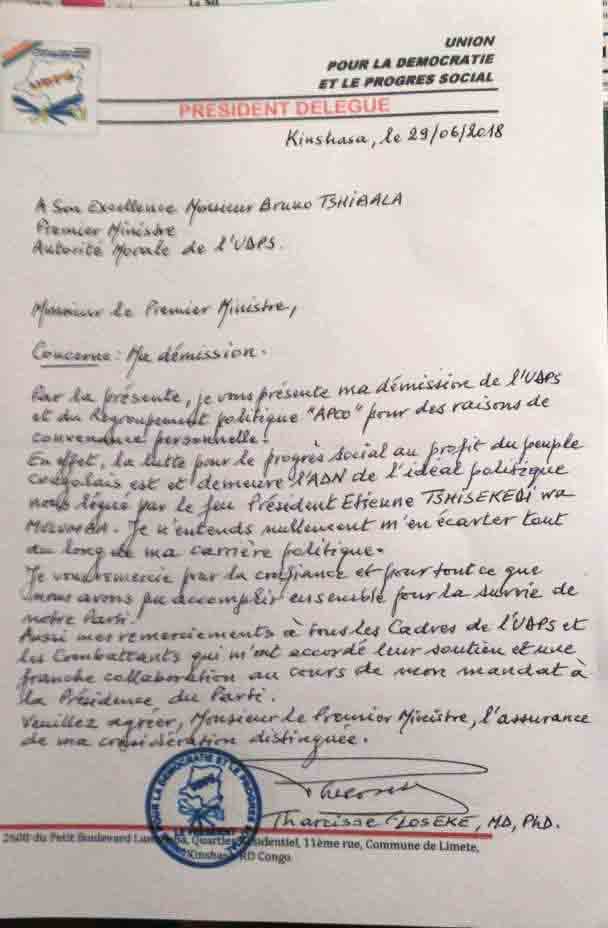 UDPS
UNION
POUR LA DEMOCRATIE
ET LE PROGRES SOCIAL
PRESIDENT DELEGUE
Kinshasa, le 29/06/2018
A Son Excellence Monsieur Bruno TSHIBALA
Premier Ministre
Autorité Morale de l'UDPS.
Monsieur le Premier Ministre,
Concerne : Ma démission.
Par la présente, je vous présente ma démission de l'UDPS
et du Regroupement politique "APCO" pour des raisons de
convenance personnelle.
En effet, la lutte pour le progrès social au profit du peuple
Congolais est et demeure l'ADN de l'idéal politique
nous légué par le feu Président Etienne TSHISEKEDI wa
MULUMBA. Je n'entends nullement m'en écarter tout
au long de ma carrière politique.
Je vous remercie par la confiance et pour tout ce que
nous avons pu accomplir ensemble pour la survie de
notre Parti.
Aussi mes remerciements à tous les Cadres de l'UDPS et
les Combattants qui m'ont accordé leur soutien et une
franche collaboration au cours de mon mandat à
la Présidence du Parti.
Veuillez agréer, Monsieur le Premier Ministre, l'assurance
de ma considération distinguée.
POUR LA DEMOCRATIE ET LE PROGRES
LE PRESIDENT
Tharcisse LOSEKE, MD, PhD.
2600 du Petit Boulevard Quartier Résidentiel, 11ème rue, Commune de Limete,
Kinshasa RD Congo